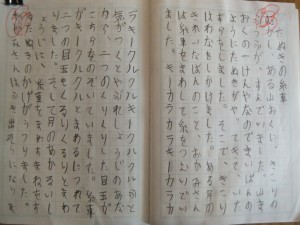 たぬきの糸車
むかし、ある山おくに、きこりの
ふうふが、すんでいました。山
おくの一けんやなのでまいばんの
ようにたぬきがやってきて、いた
ずらをしました。そこで、きこり
はわなをしかけました。ある月の
きれいなばん おかみさん
は糸車をまわして糸をつむいでい
ました。キーカラカラキーカラカ
ラキークルクルキークルクルふと
気がつくとやぶれしょうじのあな
から、二つのくりくりした目玉が
こちらをのぞいていました。糸車
がキークルクルとまわるにつれて
二つの目玉もくるりくるりとまわ
りました。そして、月のあかるいし
ょうじに、糸車をまわすまねをす
るたぬきのかげがうつりました。
おかみさんはふき出しそうになりま